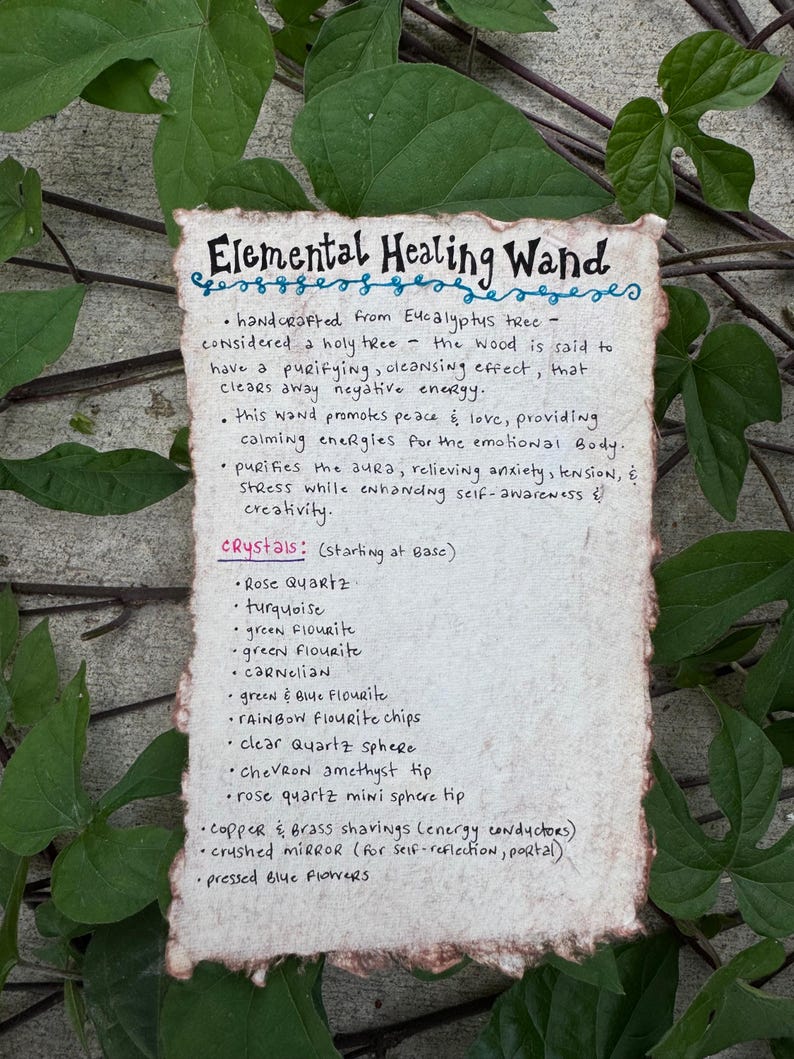 Elemental Healing Wand
• handcrafted from Eucalyptus tree -
considered a holy tree - the wood is said to
have a purifying, cleansing effect, that
clears away negative energy.
• this wand promotes peace & love, providing
calming energies for the emotional Body.
• purifies the aura, relieving anxiety, tension, &
stress while enhancing self-awareness &
creativity.
crystals: (starting at Base)
• Rose Quartz
• turquoise
• green flourite
• green flourite
• carnelian
• green & Blue flourite
• rainbow flourite chips
• clear Quartz sphere
• chevron amethyst tip
• rose quartz mini sphere tip
• copper & Brass shavings (energy conductors)
• crushed mirror (for self-reflection, portal)
• pressed Blue flowers